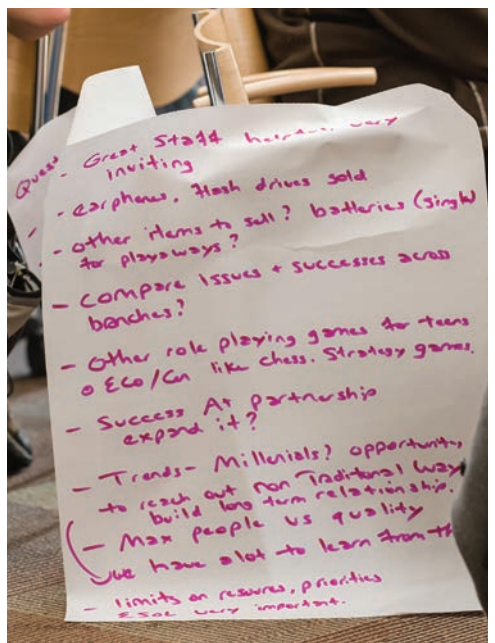 Ques
- Great Staff helpful, very
inviting
- earphones, flash drives sold
- other items to sell? batteries (single)
for playaways?
- Compare Issues + successes across
branches?
- Other role playing games for teens
o ECo/Cn like chess. Strategy games.
- Success At partnership
expand it?
- Trends- Millenials? opportunity,
to reach out non Traditional Way
build long turm relationship.
- Max people vs quality
we have a lot to learn from th
- limits on resoures, priorities
ESOL very important.